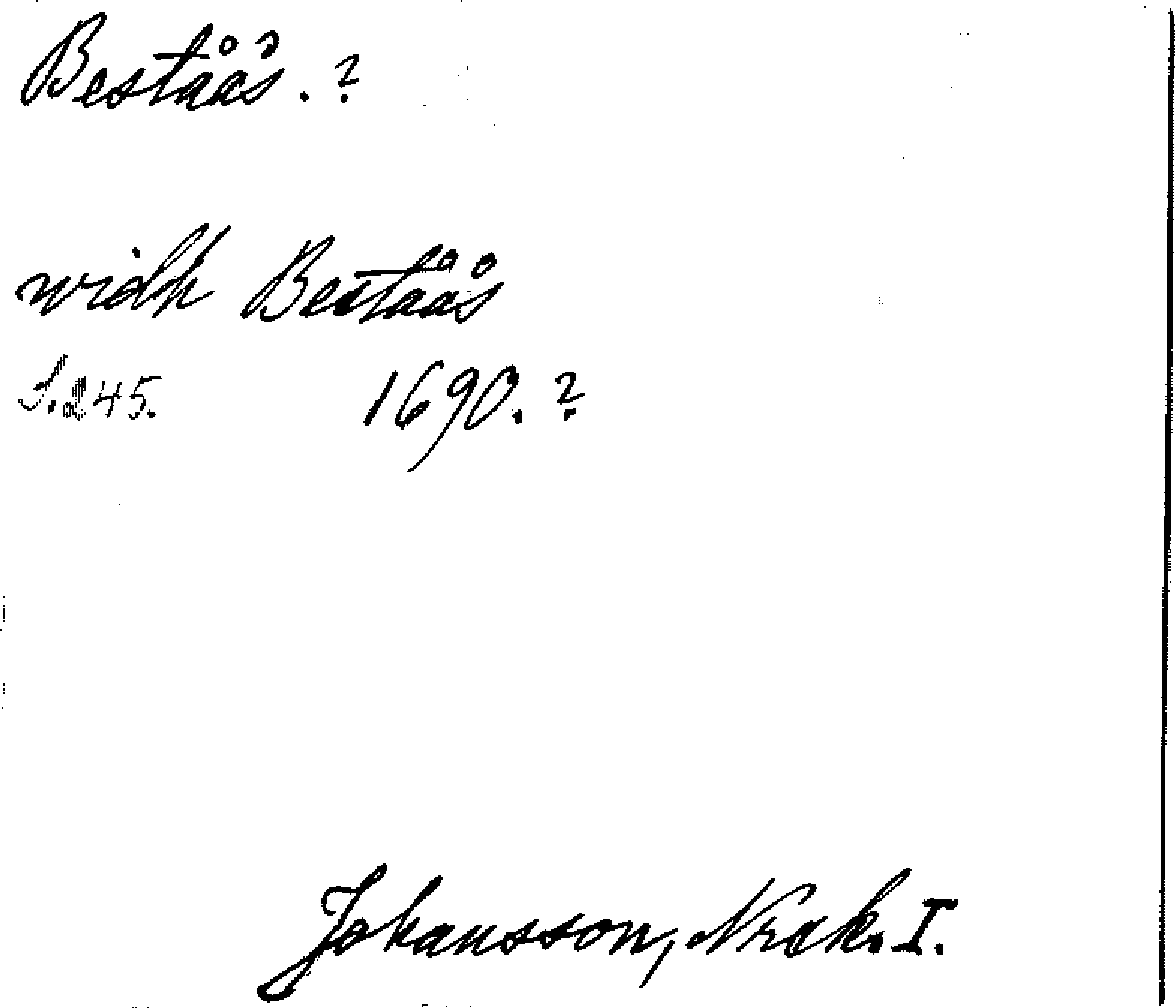 Beståås. ?
widh Beståås
S. 245. 1690. ?
Johansson, Nrak. I.